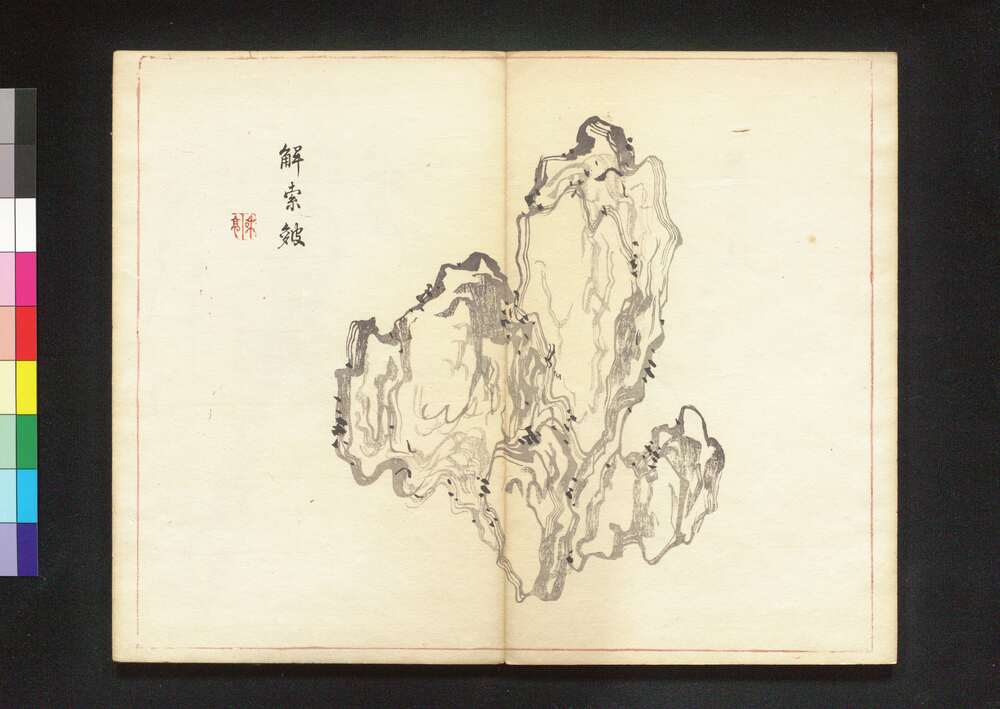 解索皴